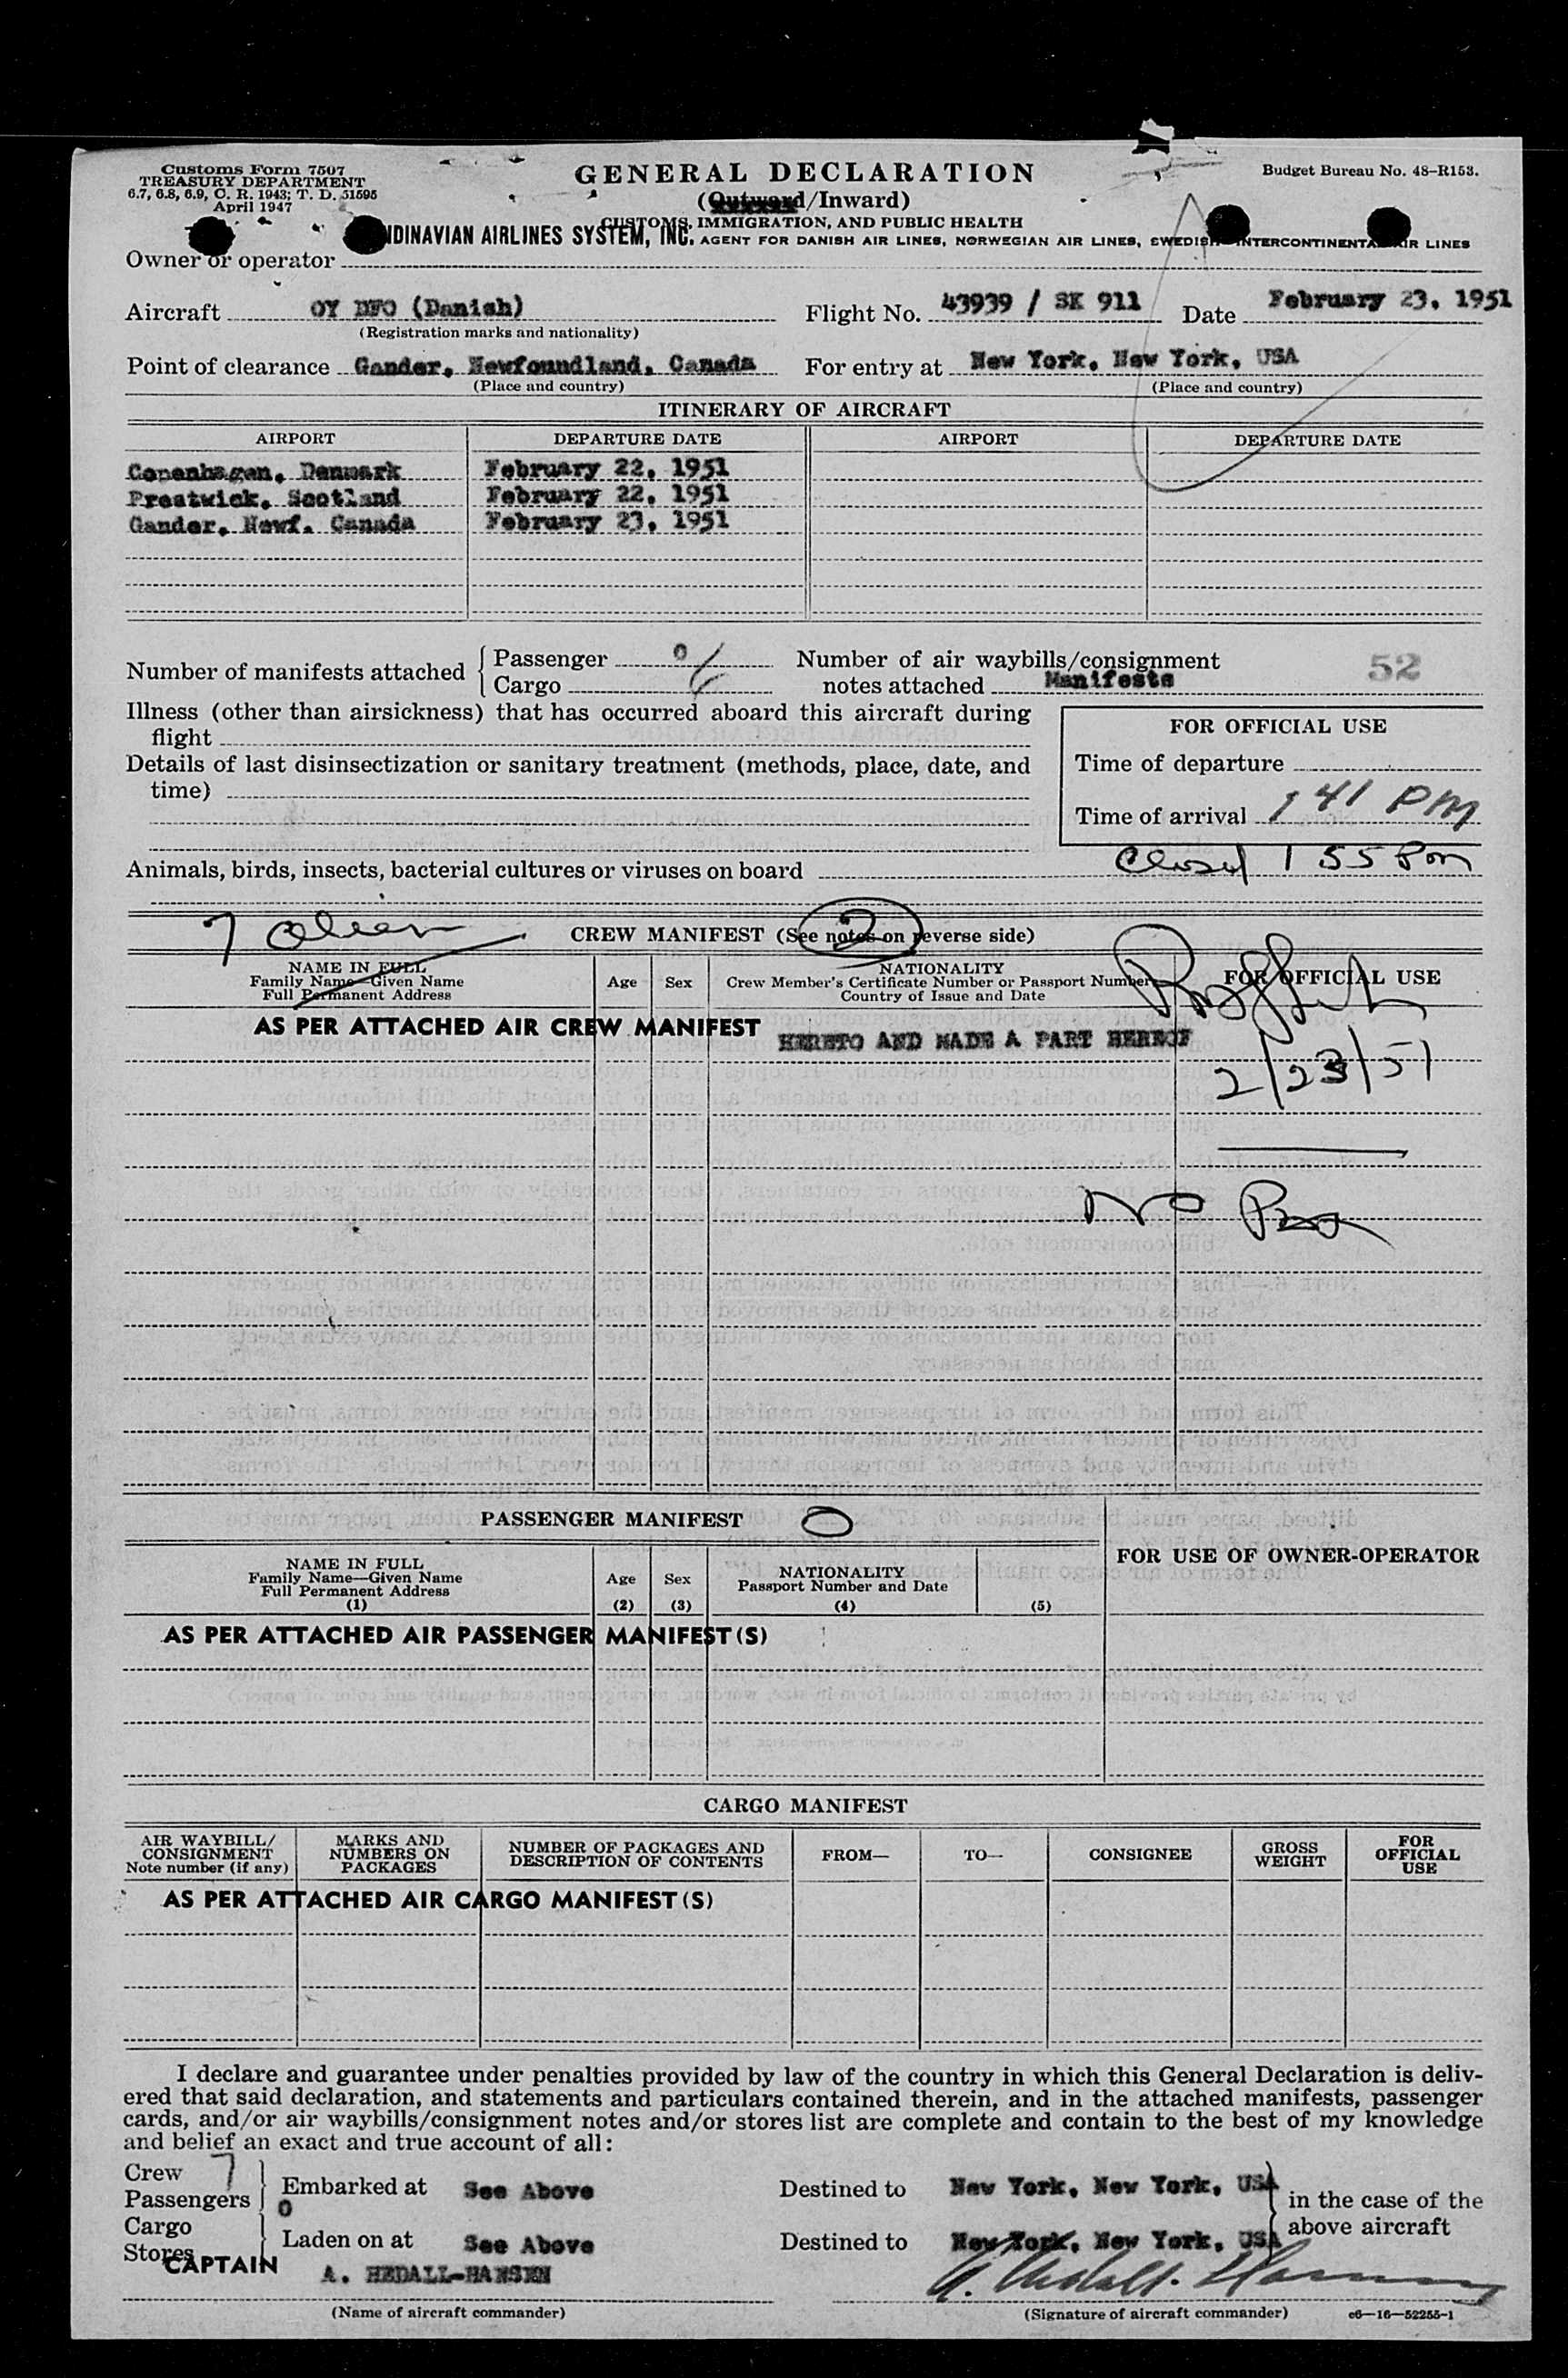 Customs Form 7507
TREASURY DEPARTMENT
6.7, 6.8, 6.9, C. R. 1943; T. D. 51595
April 1947
GENERAL DECLARATION
(Outward/Inward)
CUSTOMS, IMMIGRATION, AND PUBLIC HEALTH
Budget Bureau No. 48-R153.
NDINAVIAN AIRLINES SYSTEM, INC. AGENT FOR DANISH AIR LINES, NORWEGIAN AIR LINES, SWEDISH INTERCONTINENTAL AIR LINES
Owner or operator
Aircraft OY DFO (Danish) Flight No. 43939 / SK 911 Date February 23, 1951
(Registration marks and nationality)
Point of clearance Gander, Newfoundland, Canada For entry at New York, New York, USA
(Place and country) (Place and country)
ITINERARY OF AIRCRAFT
AIRPORT DEPARTURE DATE AIRPORT DEPARTURE DATE
Copenhagen, Denmark February 22, 1951
Prestwick, Scotland February 22, 1951
Gander, Newf. Canada February 23, 1951
Number of manifests attached Passenger 0
Cargo
Number of air waybills/consignment
notes attached Manifests 52
Illness (other than airsickness) that has occurred aboard this aircraft during
flight
Details of last disinsectization or sanitary treatment (methods, place, date, and
time)
FOR OFFICIAL USE
Time of departure
Time of arrival 1 41 PM
Closed 1 55 Pm
Animals, birds, insects, bacterial cultures or viruses on board
7 alien
CREW MANIFEST (See notes on reverse side)
2
NAME IN FULL
Family Name—Given Name
Full Permanent Address
Age Sex
NATIONALITY
Crew Member's Certificate Number or Passport Number
Country of Issue and Date
FOR OFFICIAL USE
AS PER ATTACHED AIR CREW MANIFEST HERETO AND MADE A PART HEREOF
2/23/51
No Pax
PASSENGER MANIFEST 0
NAME IN FULL
Family Name—Given Name
Full Permanent Address
(1)
Age
(2)
Sex
(3)
NATIONALITY
Passport Number and Date
(4)
(5)
FOR USE OF OWNER-OPERATOR
AS PER ATTACHED AIR PASSENGER MANIFEST(S)
CARGO MANIFEST
AIR WAYBILL/
CONSIGNMENT
Note number (if any)
MARKS AND
NUMBERS ON
PACKAGES
NUMBER OF PACKAGES AND
DESCRIPTION OF CONTENTS
FROM—
TO—
CONSIGNEE
GROSS
WEIGHT
FOR
OFFICIAL
USE
AS PER ATTACHED AIR CARGO MANIFEST(S)
I declare and guarantee under penalties provided by law of the country in which this General Declaration is deliv-
ered that said declaration, and statements and particulars contained therein, and in the attached manifests, passenger
cards, and/or air waybills/consignment notes and/or stores list are complete and contain to the best of my knowledge
and belief an exact and true account of all:
Crew 7
Passengers 0
Embarked at See Above Destined to New York, New York, USA
Cargo
Stores
Laden on at See Above Destined to New York, New York, USA
in the case of the
above aircraft
CAPTAIN A. HEDALL-HANSEN
A. Hedall-Hansen
(Name of aircraft commander) (Signature of aircraft commander) c6—16—52255-1